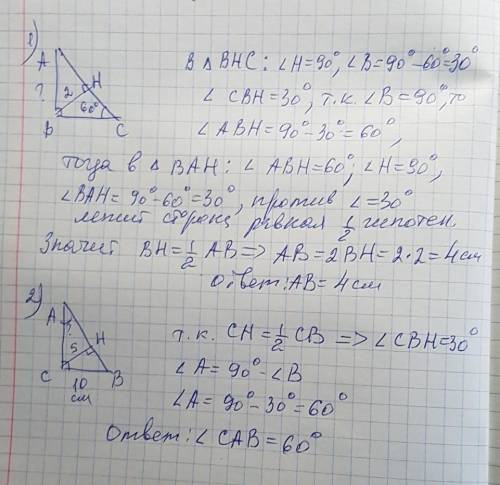 1)
A
H
?
2
60°
B
C
В △ BHC: ∠H=90°, ∠B=90°-60=30°
∠ CBH=30°, т.к. ∠B=90°, то
∠ ABH=90°-30°=60°,
тогда в △ BAH: ∠ ABH=60°, ∠H=90°,
∠BAH= 90°-60°=30°, против ∠=30°
лежит сторона равная 1/2 гипотен.
Значит BH=1/2 AB => AB=2BH=2·2=4см
Ответ: AB=4см
2)
A
?
5
H
C
B
10
см
т.к. CH=1/2 CB => ∠CBH=30°
∠A= 90°-∠B
∠A= 90°-30°=60°
Ответ: ∠ CAB=60°